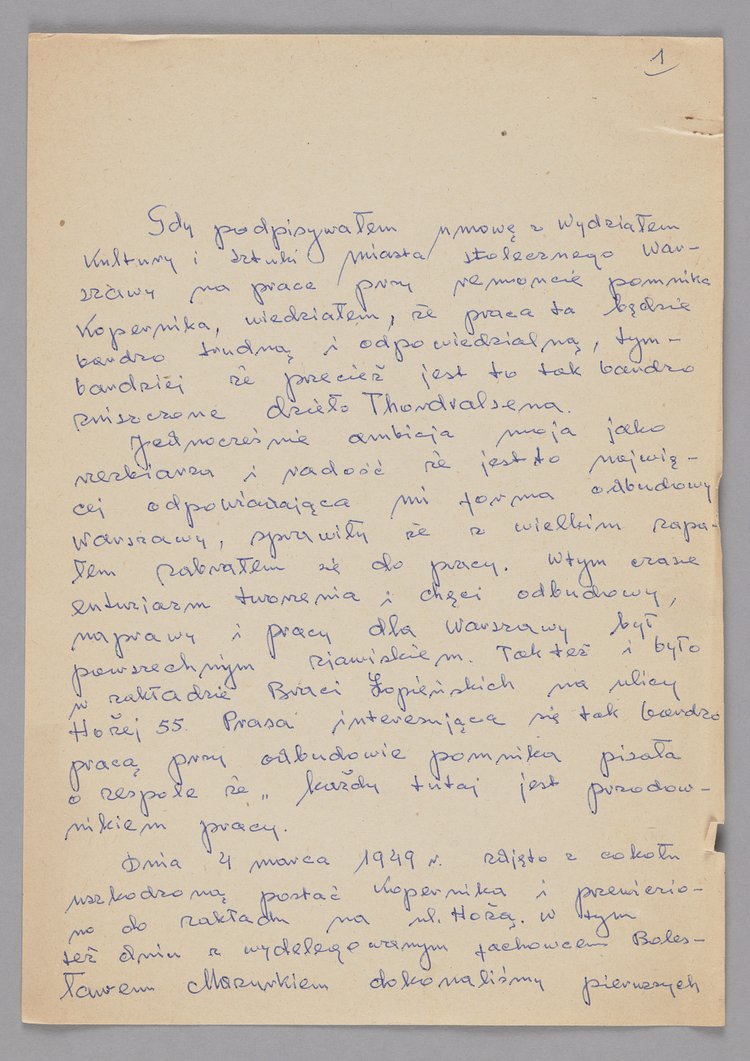 1
Gdy podpisywałem umowę z Wydziałem
Kultury i Sztuki miasta stołecznego War-
szawy na prace przy remoncie pomnika
Kopernika, wiedziałem, że praca ta będzie
bardzo trudną i odpowiedzialną, tym-
bardziej że przecież jest to tak bardzo
zniszczone dzieło Thordvalsena.
Jednocześnie ambicja moja jako
rzeźbiarza i radość że jest to najwię-
cej odpowiadająca mi forma odbudowy
Warszawy, sprawiły że z wielkim zapa-
łem zabrałem się do pracy. W tym czasie
entuzjazm tworzenia i chęci odbudowy,
naprawy i pracy dla Warszawy był
powszechnym zjawiskiem. Tak też i było
w zakładzie Braci Łopieńskich na ulicy
Hożej 55. Prasa interesująca się tak bardzo
pracą przy odbudowie pomnika pisała
o zespole że „ każdy tutaj jest przodow-
nikiem pracy.
Dnia 4 marca 1949 r. zdjęto z cokołu
uszkodzoną postać Kopernika i przewiezio-
no do zakładu na ul. Hożą. W tym
też dniu z wydelegowanym fachowcem Boles-
ławem Mazurkiem dokonaliśmy pierwszych